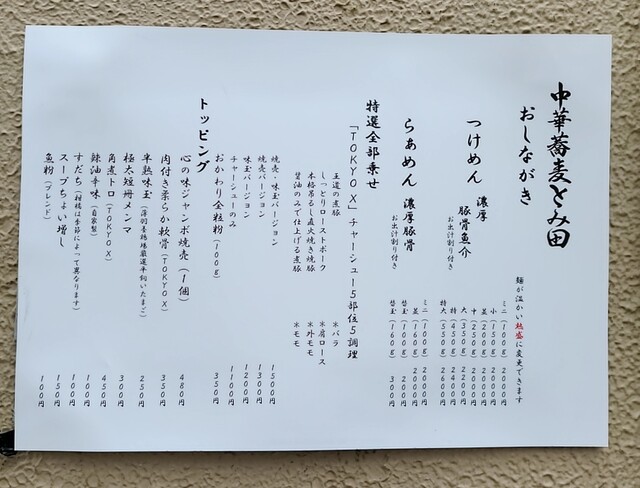 中華蕎麦とみ田
おしながき
麺が温かい熱盛に変更できます
つけめん 濃厚 豚骨魚介 お出汁割り付き
ミニ (100g) 2000円
小 (150g) 2000円
並 (200g) 2000円
中 (250g) 2100円
大 (350g) 2200円
特 (450g) 2400円
特大 (550g) 2600円
らぁめん 濃厚豚骨 お出汁割り付き
ミニ (100g) 2000円
並 (160g) 2000円
替玉 (100g) 200円
替玉 (160g) 300円
特選全部乗せ
「TOKYO X」チャーシュー5部位5調理
王道の煮豚 ※バラ
しっとりローストポーク ※肩ロース
本格吊るし直火焼き焼豚 ※外モモ
醤油のみで仕上げる煮豚 ※モモ
焼売・味玉バージョン 1500円
焼売バージョン 1300円
味玉バージョン 1200円
チャーシューのみ 1100円
トッピング
おかわり全粒粉 (100g) 350円
心の味ジャンボ焼売 (1個) 480円
肉付き柔らか軟骨 (TOKYO X) 350円
半熟味玉 250円
極太短冊メンマ 300円
角煮トロ (TOKYO X) 450円
辣油辛味 (自家製) 100円
すだち (柑橘は季節によって異なります) 100円
スープちょい増し 150円
魚粉 (ブレンド) 100円